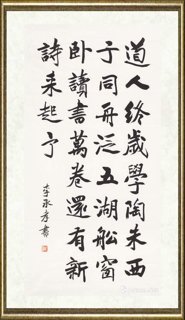 道人終歲學陶朱西
子同舟泛五湖船窗
卧讀書萬卷還有新
詩来起予
李承孝書